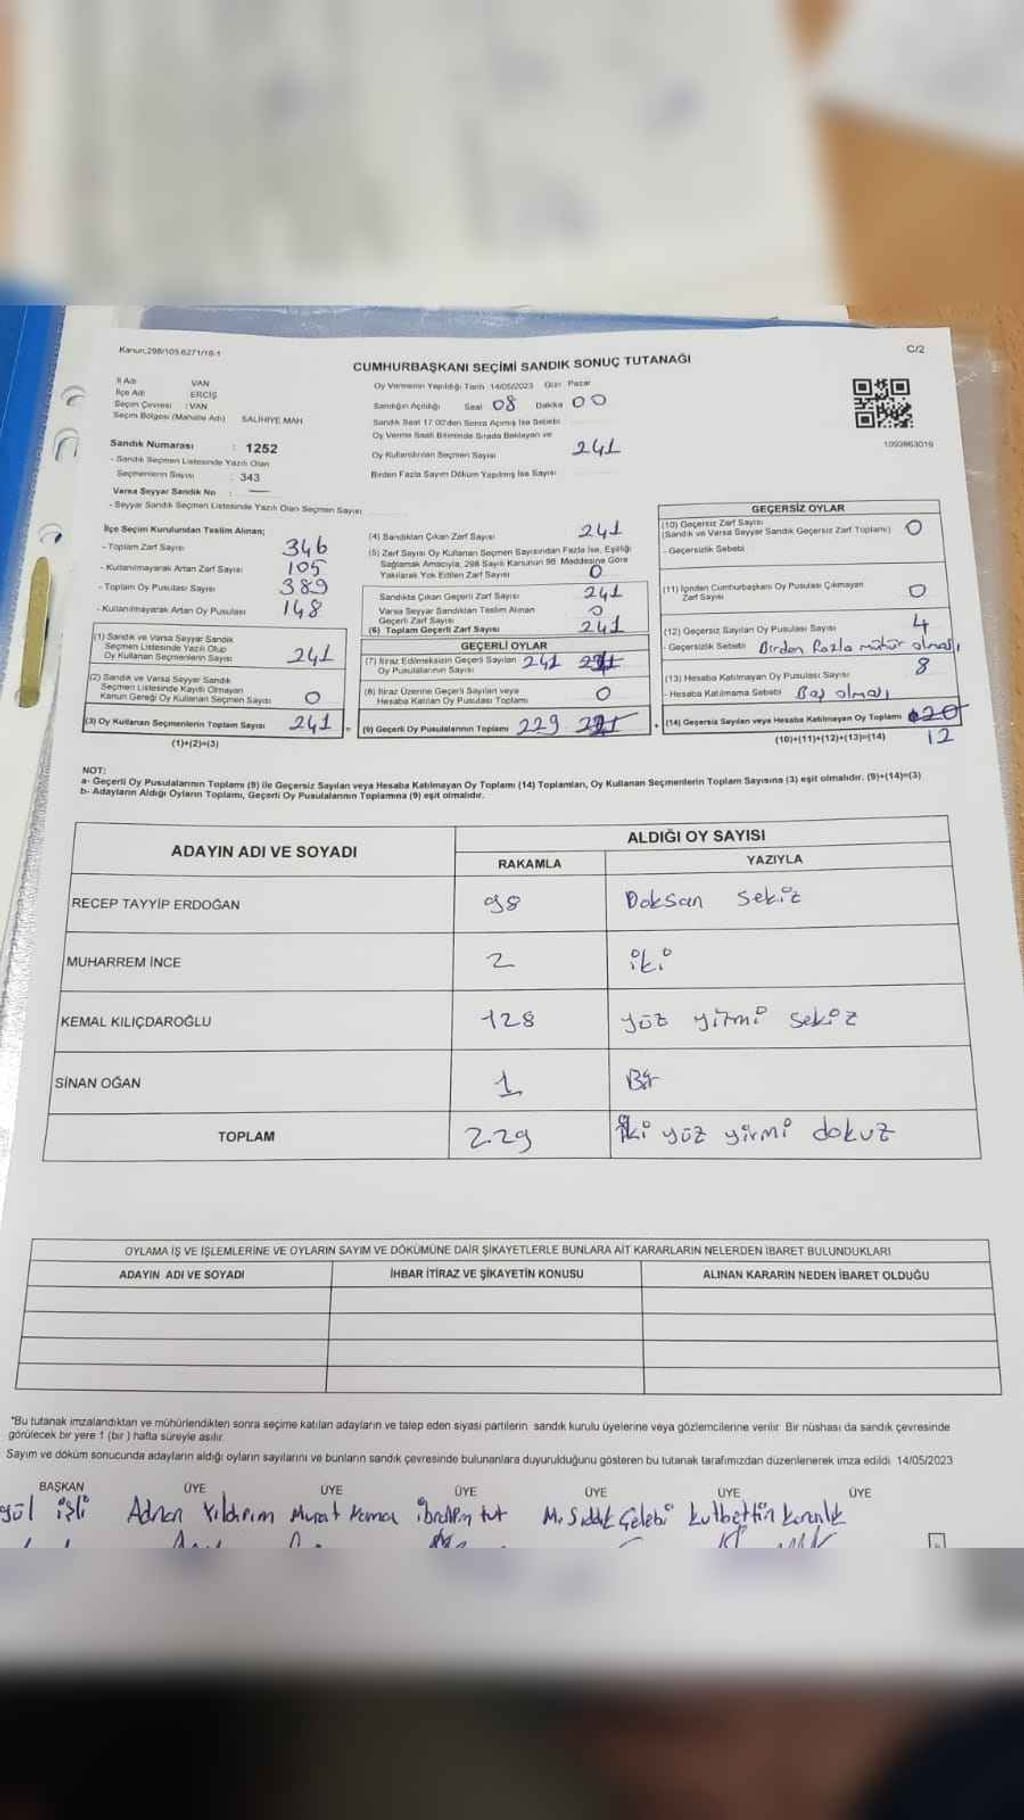 Kanun;298/105.6271/18-1
C/2
CUMHURBAŞKANI SEÇİMİ SANDIK SONUÇ TUTANAĞI
İl Adı VAN
İlçe Adı ERCİŞ
Seçim Çevresi : VAN
Seçim Bölgesi (Mahalle Adı) SALİHİYE MAH
Sandık Numarası : 1252
- Sandık Seçmen Listesinde Yazılı Olan
Seçmenlerin Sayısı : 343
Varsa Seyyar Sandık No :
- Seyyar Sandık Seçmen Listesinde Yazılı Olan Seçmen Sayısı
Oy Vermenin Yapıldığı Tarih 14/05/2023 Gün Pazar
Sandığın Açıldığı Saat 08 Dakika 00
Sandık Saat 17.00'den Sonra Açılmış İse Sebebi
Oy Verme Saati Bitiminde Sırada Bekleyen ve
Oy Kullandırılan Seçmen Sayısı 241
Birden Fazla Sayım Döküm Yapılmış İse Sayısı
1093863019
İlçe Seçim Kurulundan Teslim Alınan;
- Toplam Zarf Sayısı 346
- Kullanılmayarak Artan Zarf Sayısı 105
- Toplam Oy Pusulası Sayısı 389
- Kullanılmayarak Artan Oy Pusulası 148
(1) Sandık ve Varsa Seyyar Sandık
Seçmen Listesinde Yazılı Olup
Oy Kullanan Seçmenlerin Sayısı 241
(2) Sandık ve Varsa Seyyar Sandık
Seçmen Listesinde Kayıtlı Olmayan
Kanun Gereği Oy Kullanan Seçmen Sayısı 0
(3) Oy Kullanan Seçmenlerin Toplam Sayısı 241
(1)+(2)=(3)
(4) Sandıktan Çıkan Zarf Sayısı 241
(5) Zarf Sayısı Oy Kullanan Seçmen Sayısından Fazla İse, Eşitliği
Sağlamak Amacıyla, 298 Sayılı Kanunun 98. Maddesine Göre
Yakılarak Yok Edilen Zarf Sayısı 0
Sandıkta Çıkan Geçerli Zarf Sayısı 241
Varsa Seyyar Sandıktan Teslim Alınan
Geçerli Zarf Sayısı 0
(6) Toplam Geçerli Zarf Sayısı 241
GEÇERLİ OYLAR
(7) İtiraz Edilmeksizin Geçerli Sayılan
Oy Pusulalarının Sayısı 241
(8) İtiraz Üzerine Geçerli Sayılan veya
Hesaba Katılan Oy Pusulası Toplamı 0
(9) Geçerli Oy Pusulalarının Toplamı 229
GEÇERSİZ OYLAR
(10) Geçersiz Zarf Sayısı
(Sandık ve Varsa Seyyar Sandık Geçersiz Zarf Toplamı) 0
- Geçersizlik Sebebi
(11) İçinden Cumhurbaşkanı Oy Pusulası Çıkmayan
Zarf Sayısı 0
(12) Geçersiz Sayılan Oy Pusulası Sayısı 4
- Geçersizlik Sebebi Birden fazla mühür olması
(13) Hesaba Katılmayan Oy Pusulası Sayısı 8
- Hesaba Katılmama Sebebi Boş olması
(14) Geçersiz Sayılan veya Hesaba Katılmayan Oy Toplamı 20
(10)+(11)+(12)+(13)=(14) 12
NOT:
a- Geçerli Oy Pusulalarının Toplamı (9) ile Geçersiz Sayılan veya Hesaba Katılmayan Oy Toplamı (14) Toplamları, Oy Kullanan Seçmenlerin Toplam Sayısına (3) eşit olmalıdır. (9)+(14)=(3)
b- Adayların Aldığı Oyların Toplamı, Geçerli Oy Pusulalarının Toplamına (9) eşit olmalıdır.
ADAYIN ADI VE SOYADI
ALDIĞI OY SAYISI
RAKAMLA YAZIYLA
RECEP TAYYİP ERDOĞAN 98 Doksan sekiz
MUHARREM İNCE 2 iki
KEMAL KILIÇDAROĞLU 128 yüz yirmi sekiz
SİNAN OĞAN 1 Bir
TOPLAM 229 iki yüz yirmi dokuz
OYLAMA İŞ VE İŞLEMLERİNE VE OYLARIN SAYIM VE DÖKÜMÜNE DAİR ŞİKAYETLERLE BUNLARA AİT KARARLARIN NELERDEN İBARET BULUNDUKLARI
ADAYIN ADI VE SOYADI İHBAR İTİRAZ VE ŞİKAYETİN KONUSU ALINAN KARARIN NEDEN İBARET OLDUĞU
*Bu tutanak imzalandıktan ve mühürlendikten sonra seçime katılan adayların ve talep eden siyasi partilerin sandık kurulu üyelerine veya gözlemcilerine verilir. Bir nüshası da sandık çevresinde
görülecek bir yere 1 (bir ) hafta süreyle asılır.
Sayım ve döküm sonucunda adayların aldığı oyların sayılarını ve bunların sandık çevresinde bulunanlara duyurulduğunu gösteren bu tutanak tarafımızdan düzenlenerek imza edildi. 14/05/2023
BAŞKAN ÜYE ÜYE ÜYE ÜYE ÜYE ÜYE
gül işli Adnan Yıldırım Murat ibrahim tut M. Sıddık Çelebi kutbettin